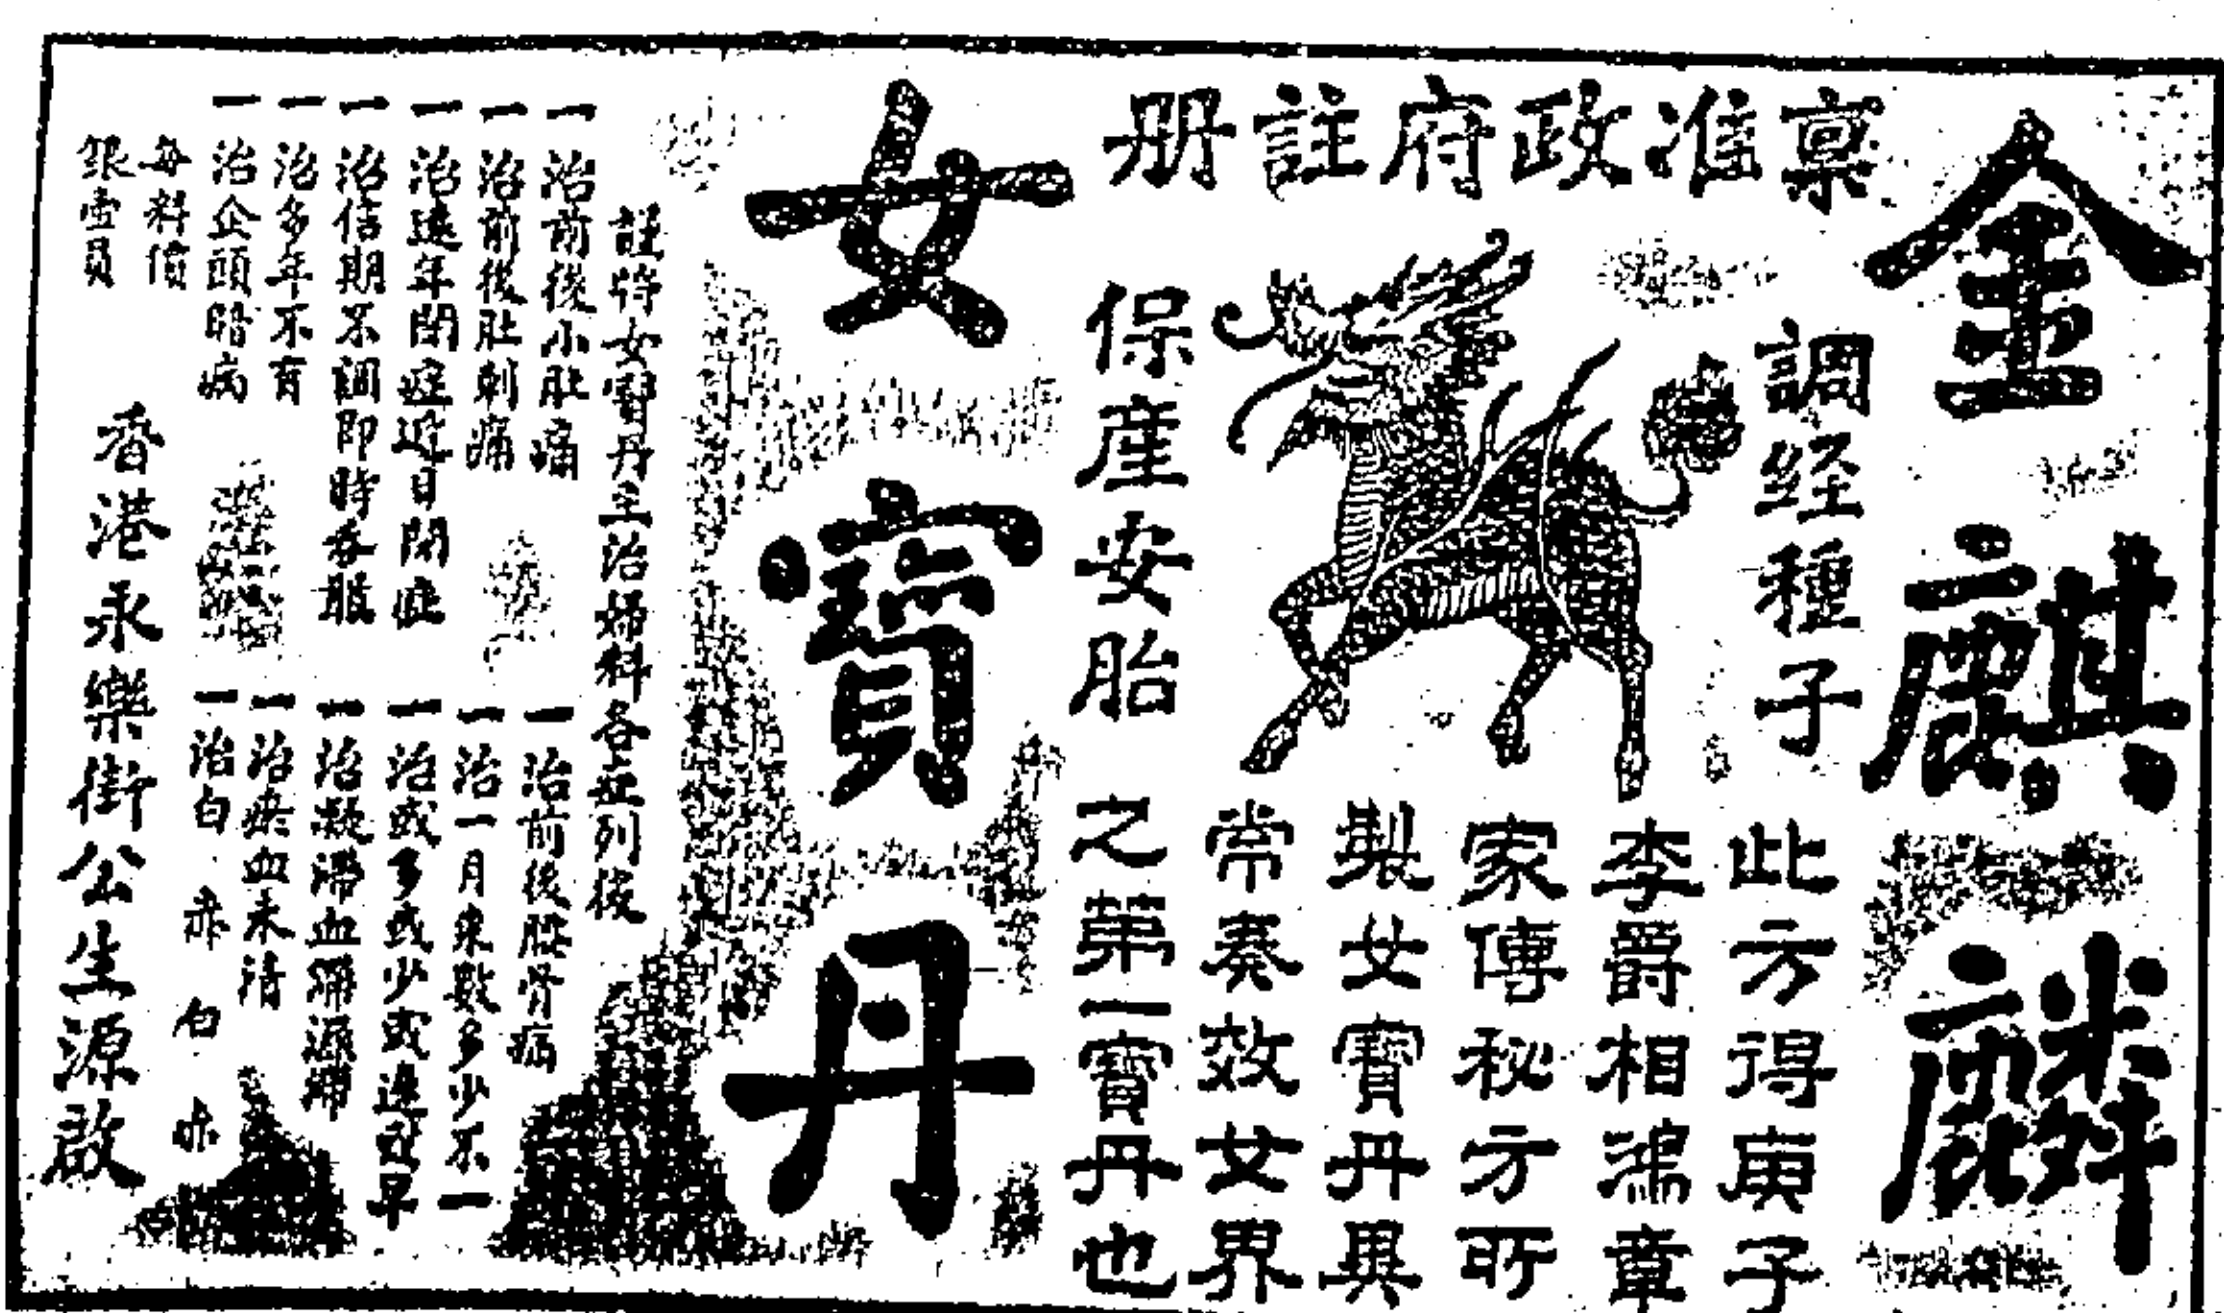 金麒麟
稟准政府註册
調經種子
保産安胎
此方得庚子
李爵相鴻章
家傳秘方所
製女寶丹異
常奏效女界
之第一寶丹也
女寶丹
謹將女寶丹主治婦科各症列後
一治前後小肚痛
一治前後肚刺痛
一治遠年閉症近日閉症
一治信期不調即時吞服
一治多年不育
一治企頭暗病
一治前後腰骨病
一治一月來數多少不一
一治或多或少或遲或早
一治凝滯血
一治瘀血未清
一治白 赤 白 赤
每料價
銀壹員
香港永樂街公生源啟